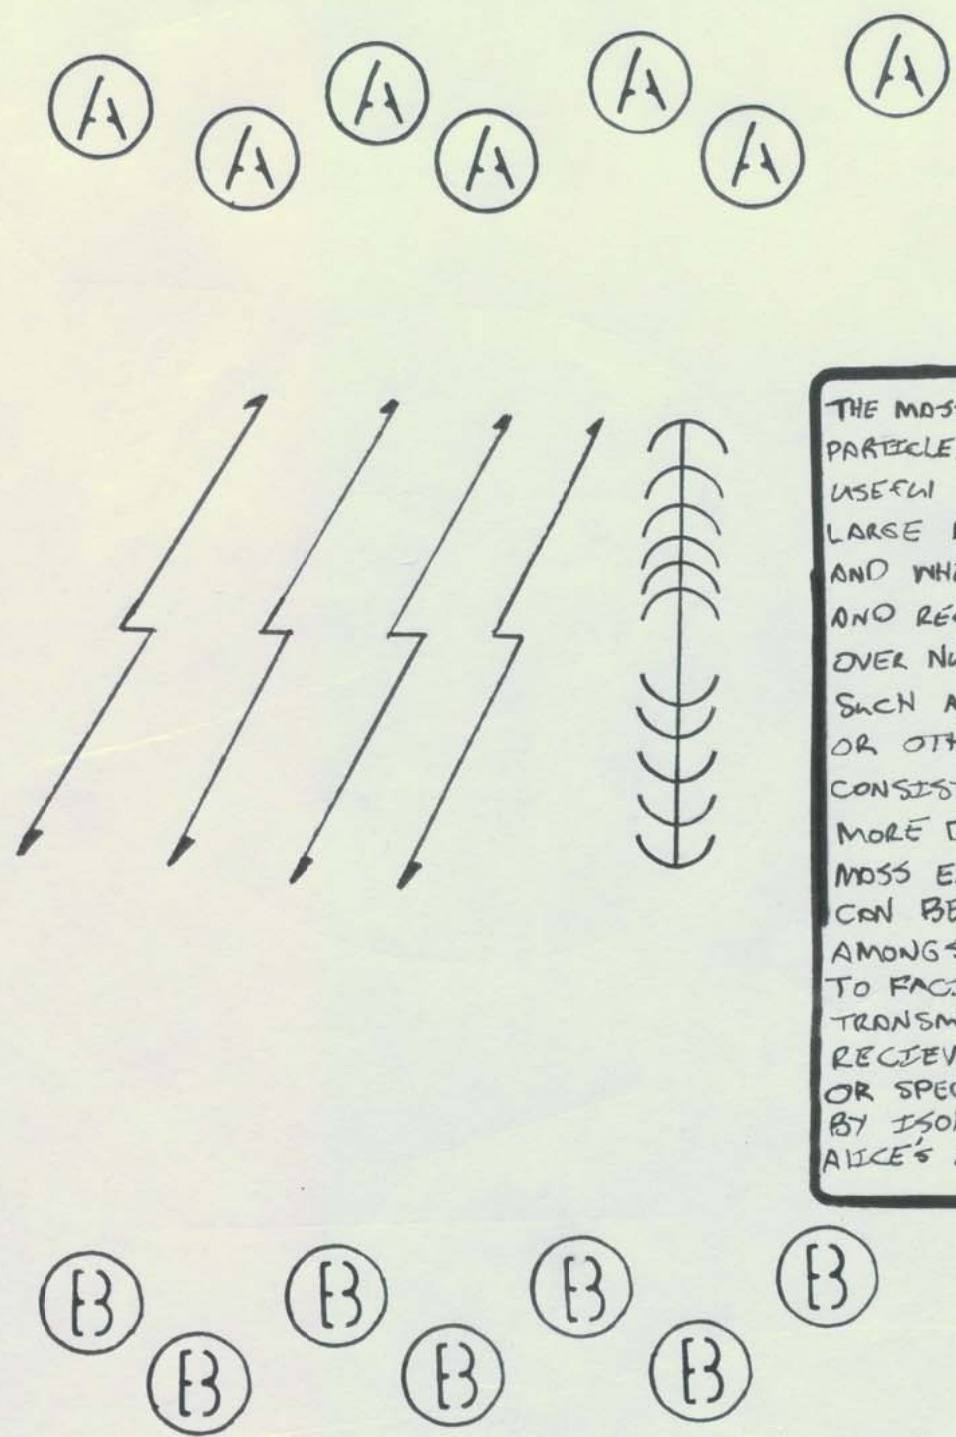 A A A A
A A A
THE MASS
PARTICLE
USEFUL
LARGE
AND
AND
OVER
SUCH
OR
CONSIST
MORE
MASS
CAN BE
AMONGS
TO
TRANSM
RECIEV
OR SPEC
BY
ALICE'S
B B B B
B B B